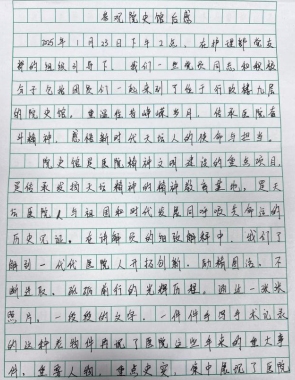 参观院史馆后感
2025年1月23日下午2点，在护理部党支
部的组织引导下，我们一些党员同志和积极
分子包括团员们一起来到了位于行政楼九层
的院史馆，重温往昔峥嵘岁月，传承医院奋
斗精神，感悟新时代大坛人的使命与担当。
院史馆是医院精神文明建设的重点项目，
是传承发扬天坛精神的精神教育基地，是天
坛医院人与祖国和时代发展同呼吸共命运的
历史见证。在讲解员的细致解释中，我们了
解到一代代医院人开拓创新、励精图治，不
断进取、砥砺前行的光辉历程。通过一张张
照片，一段段的文字，一件件手写手术记录
的这种老物件再现了医院这些年来的重大事
件、重要人物、重点史实，集中展现了医院